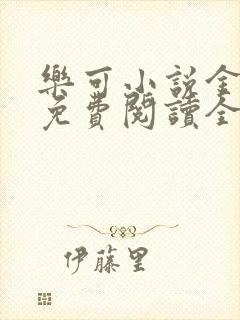 樂可小说全
免費閱讀全
伊藤里